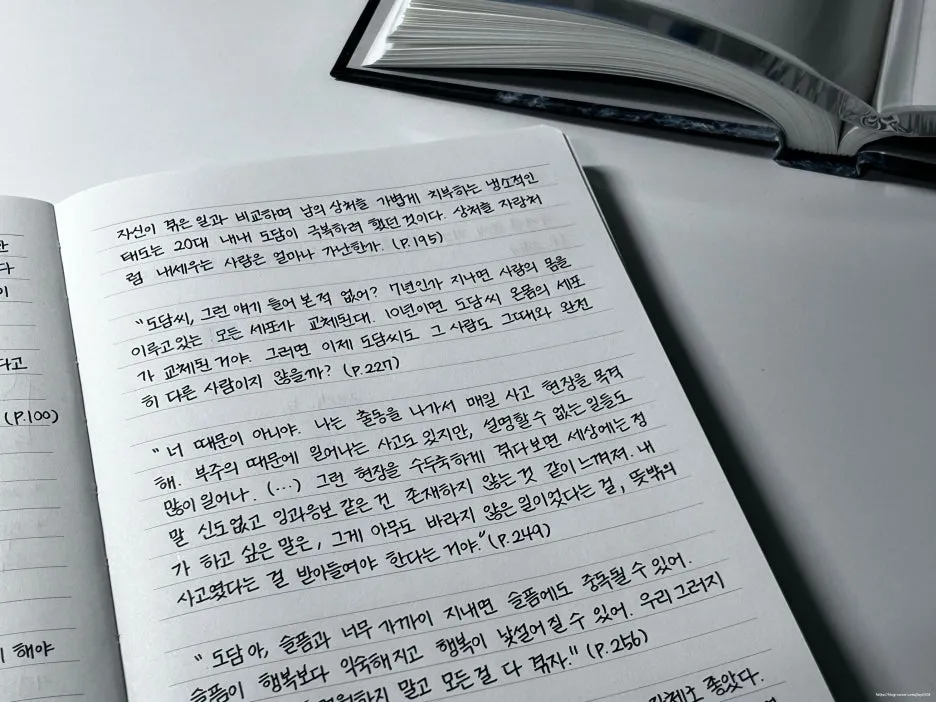 자신이 겪은 일과 비교하며 남의 상처를 가볍게 치부하는 냉소적인
태도는 20대 내내 도담이 극복하려 했던 것이다. 상처를 자랑처
럼 내세우는 사람은 얼마나 가난한가. (P.195)
"도담씨, 그런 얘기 들어 본 적 없어? 7년인가 지나면 사람의 몸을
이루고 있는 모든 세포가 교체된대. 10년이면 도담씨 온몸의 세포
가 교체된 거야. 그러면 이제 도담씨도 그 사람도 그때와 완전
히 다른 사람이지 않을까? (P.227)
"너 때문이 아니야. 나는 출동을 나가서 매일 사고 현장을 목격
해. 부주의 때문에 일어나는 사고도 있지만, 설명할 수 없는 일들도
많이 일어나. (...) 그런 현장을 수두룩하게 겪다보면 세상에는 정
말 신도 없고 인과응보 같은 건 존재하지 않는 것 같이 느껴져. 내
가 하고 싶은 말은, 그게 아무도 바라지 않은 일이었다는 걸, 뜻밖의
사고였다는 걸 받아들여야 한다는 거야." (P.249)
"도담아, 슬픔과 너무 가까이 지내면 슬픔에도 중독될 수 있어.
슬픔이 행복보다 익숙해지고 행복이 낯설어질 수 있어. 우리 그러지
말고 모든 걸 다 겪자." (P.256)
좋았다.
다고
(P.100)
해야